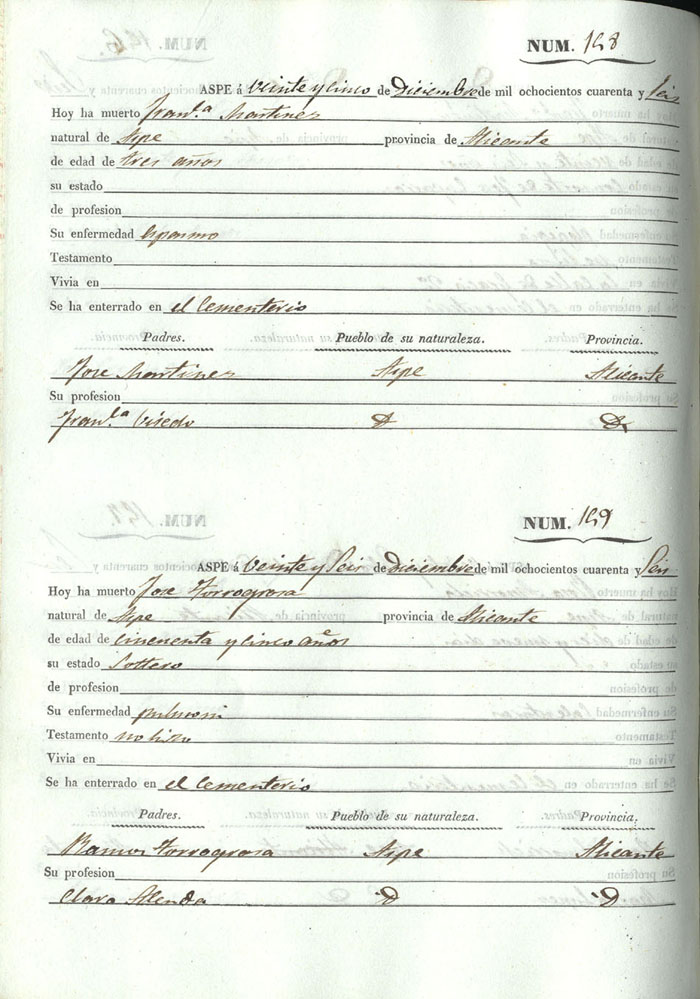 NUM. 148
ASPE á Veinte y Cinco de Diciembre de mil ochocientos cuarenta y Seis
Hoy ha muerto Fran.ca Martinez
natural de Aspe provincia de Alicante
de edad de tres años
su estado
de profesion
Su enfermedad espasmo
Testamento
Vivia en
Se ha enterrado en el Cementerio
Padres. Pueblo de su naturaleza. Provincia.
Jose Martinez Aspe Alicante
Su profesion
Fran.ca D D
NUM. 149
ASPE á Veinte y Seis de Diciembre de mil ochocientos cuarenta y Seis
Hoy ha muerto Jose Torregrosa
natural de Aspe provincia de Alicante
de edad de cincuenta y cinco años
su estado Soltero
de profesion
Su enfermedad
Testamento no hizo
Vivia en
Se ha enterrado en el Cementerio
Padres. Pueblo de su naturaleza. Provincia.
Ramon Torregrosa Aspe Alicante
Su profesion
Clara Alenda D D